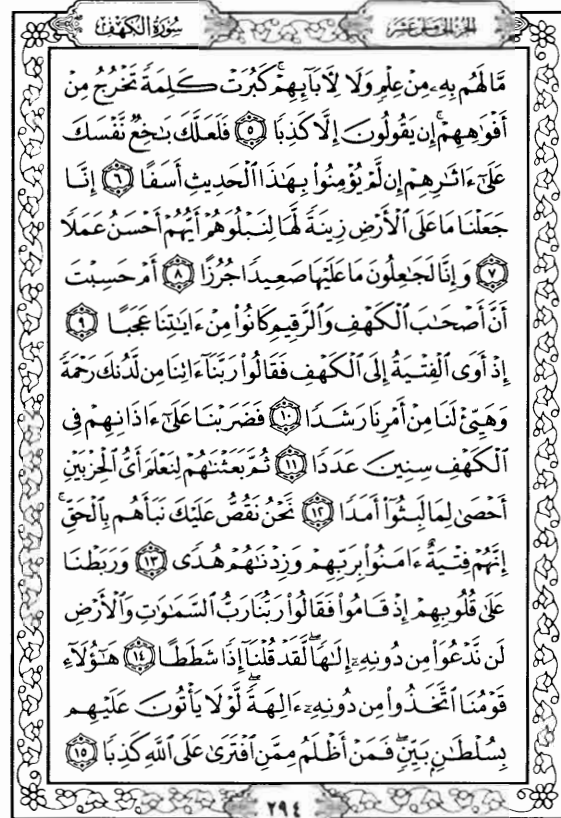 سُورَةُ الكَهْفِ
الجُزْءُ الخَامِسَ عَشَرَ
مَّا لَهُم بِهِۦ مِنْ عِلْمٍ وَلَا لِأٓبَآئِهِمْۚ كَبُرَتْ كَلِمَةً تَخْرُجُ مِنْ
أَفْوَٰهِهِمْۚ إِن يَقُولُونَ إِلَّا كَذِبًا ٥ فَلَعَلَّكَ بَٰخِعٌ نَّفْسَكَ
عَلَىٰٓ ءَاثَٰرِهِمْ إِن لَّمْ يُؤْمِنُوا۟ بِهَٰذَا ٱلْحَدِيثِ أَسَفًا ٦ إِنَّا
جَعَلْنَا مَا عَلَى ٱلْأَرْضِ زِينَةً لَّهَا لِنَبْلُوَهُمْ أَيُّهُمْ أَحْسَنُ عَمَلًا
٧ وَإِنَّا لَجَٰعِلُونَ مَا عَلَيْهَا صَعِيدًا جُرُزًا ٨ أَمْ حَسِبْتَ
أَنَّ أَصْحَٰبَ ٱلْكَهْفِ وَٱلرَّقِيمِ كَانُوا۟ مِنْ ءَايَٰتِنَا عَجَبًا ٩
إِذْ أَوَى ٱلْفِتْيَةُ إِلَى ٱلْكَهْفِ فَقَالُوا۟ رَبَّنَآ ءَاتِنَا مِن لَّدُنكَ رَحْمَةً
وَهَيِّئْ لَنَا مِنْ أَمْرِنَا رَشَدًا ١٠ فَضَرَبْنَا عَلَىٰٓ ءَاذَانِهِمْ فِى
ٱلْكَهْفِ سِنِينَ عَدَدًا ١١ ثُمَّ بَعَثْنَٰهُمْ لِنَعْلَمَ أَىُّ ٱلْحِزْبَيْنِ
أَحْصَىٰ لِمَا لَبِثُوٓا۟ أَمَدًا ١٢ نَّحْنُ نَقُصُّ عَلَيْكَ نَبَأَهُم بِٱلْحَقِّۚ
إِنَّهُمْ فِتْيَةٌ ءَامَنُوا۟ بِرَبِّهِمْ وَزِدْنَٰهُمْ هُدًى ١٣ وَرَبَطْنَا
عَلَىٰ قُلُوبِهِمْ إِذْ قَامُوا۟ فَقَالُوا۟ رَبُّنَا رَبُّ ٱلسَّمَٰوَٰتِ وَٱلْأَرْضِ
لَن نَّدْعُوَا۟ مِن دُونِهِۦٓ إِلَٰهًاۖ لَّقَدْ قُلْنَآ إِذًا شَطَطًا ١٤ هَٰٓؤُلَآءِ
قَوْمُنَا ٱتَّخَذُوا۟ مِن دُونِهِۦٓ ءَالِهَةًۖ لَّوْلَا يَأْتُونَ عَلَيْهِم
بِسُلْطَٰنٍۭ بَيِّنٍۖ فَمَنْ أَظْلَمُ مِمَّنِ ٱفْتَرَىٰ عَلَى ٱللَّهِ كَذِبًا ١٥
٢٩٤